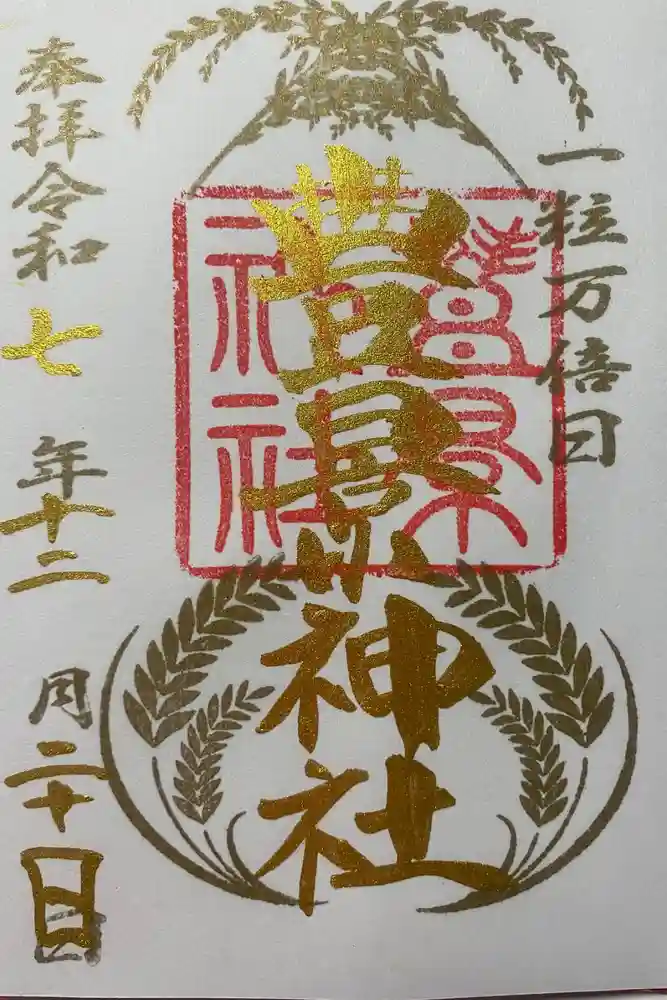 一粒万倍日
豊景神社
豊景
神社
奉拝令和七年十二月二十日